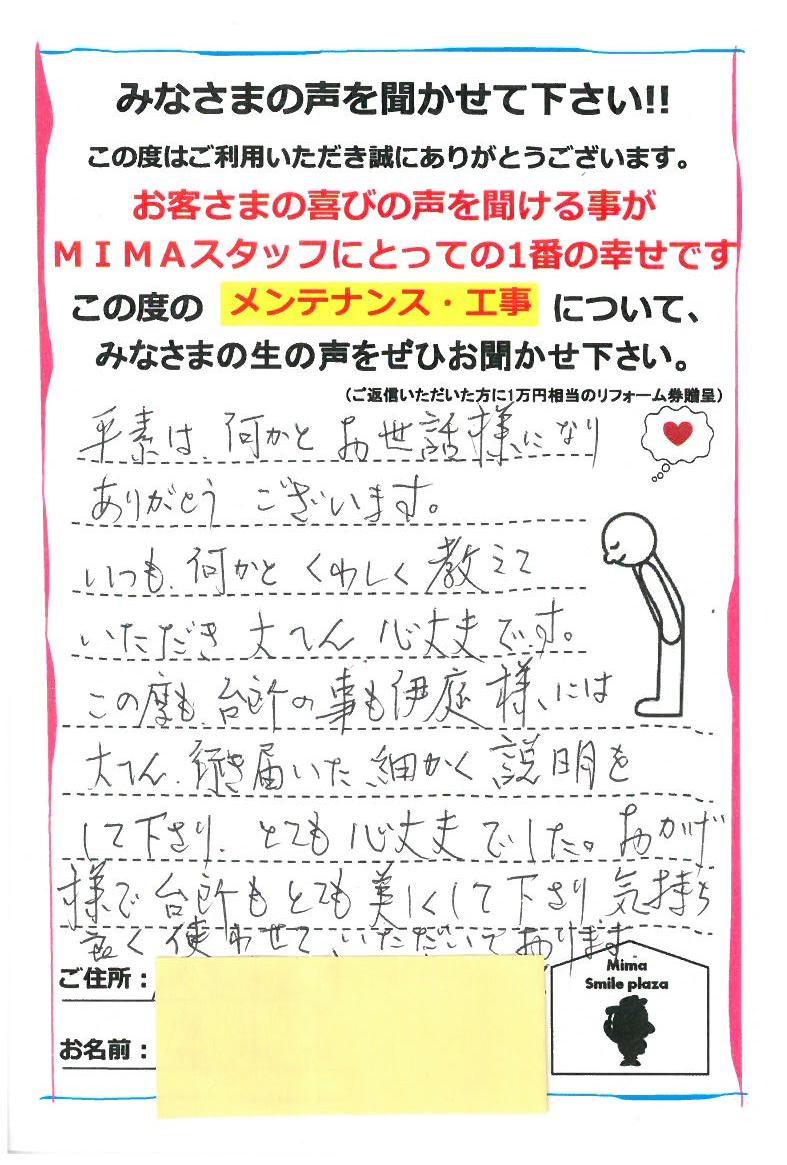 みなさまの声を聞かせて下さい!!
この度はご利用いただき誠にありがとうございます。
お客さまの喜びの声を聞ける事が
ＭＩＭＡスタッフにとっての1番の幸せです
この度の メンテナンス・工事 について、
みなさまの生の声をぜひお聞かせ下さい。
(ご返信いただいた方に1万円相当のリフォーム券贈呈)
平素は、何かと お世話様になり
ありがとう ございます。
いつも、何かと くわしく 教えて
いただき 大へん 心丈夫です。
この度も、台所の事も伊庭様、には
大へん、行き届いた 細かく 説明を
して下さり、とても 心丈夫 でした。おかげ
様で 台所もとても 美しくして下さり 気持ち
良く 使わせて、いただいております。
ご住所：
お名前：
Mima
Smile plaza